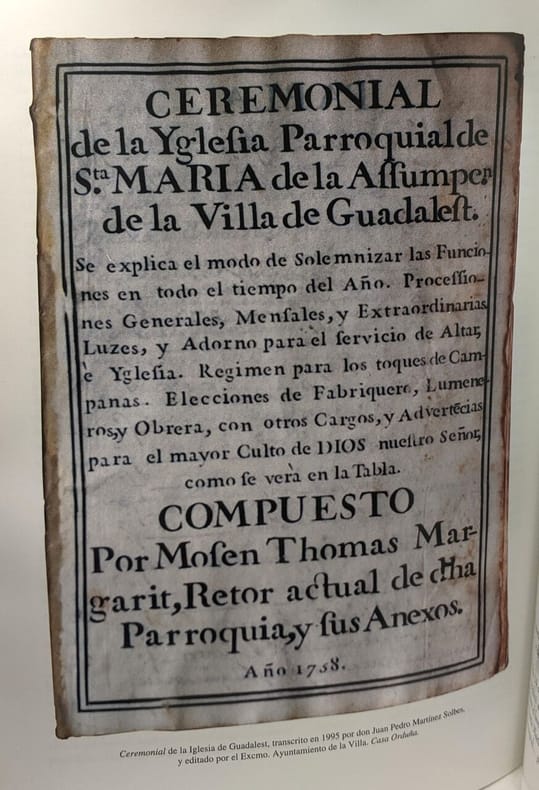 CEREMONIAL
de la Yglesia Parroquial de
S.ta MARIA de la Assumpcn
de la Villa de Guadalest.
Se explica el modo de Solemnizar las Funcio-
nes en todo el tiempo del Año. Processio-
nes Generales, Mensales, y Extraordinarias,
Luzes, y Adorno para el servicio de Altar,
è Yglesia. Regimen para los toques de Cam-
panas. Elecciones de Fabriquero, Lumene-
ros, y Obrera, con otros Cargos, y Advertēcias
para el mayor Culto de DIOS nuestro Señor,
como se verà en la Tabla.
COMPUESTO
Por Mosen Thomas Mar-
garit, Retor actual de dha
Parroquia, y sus Anexos.
Año 1758.
Ceremonial de la Iglesia de Guadalest, transcrito en 1995 por don Juan Pedro Martínez Solbes,
y editado por el Excmo. Ayuntamiento de la Villa. Casa Orduña.